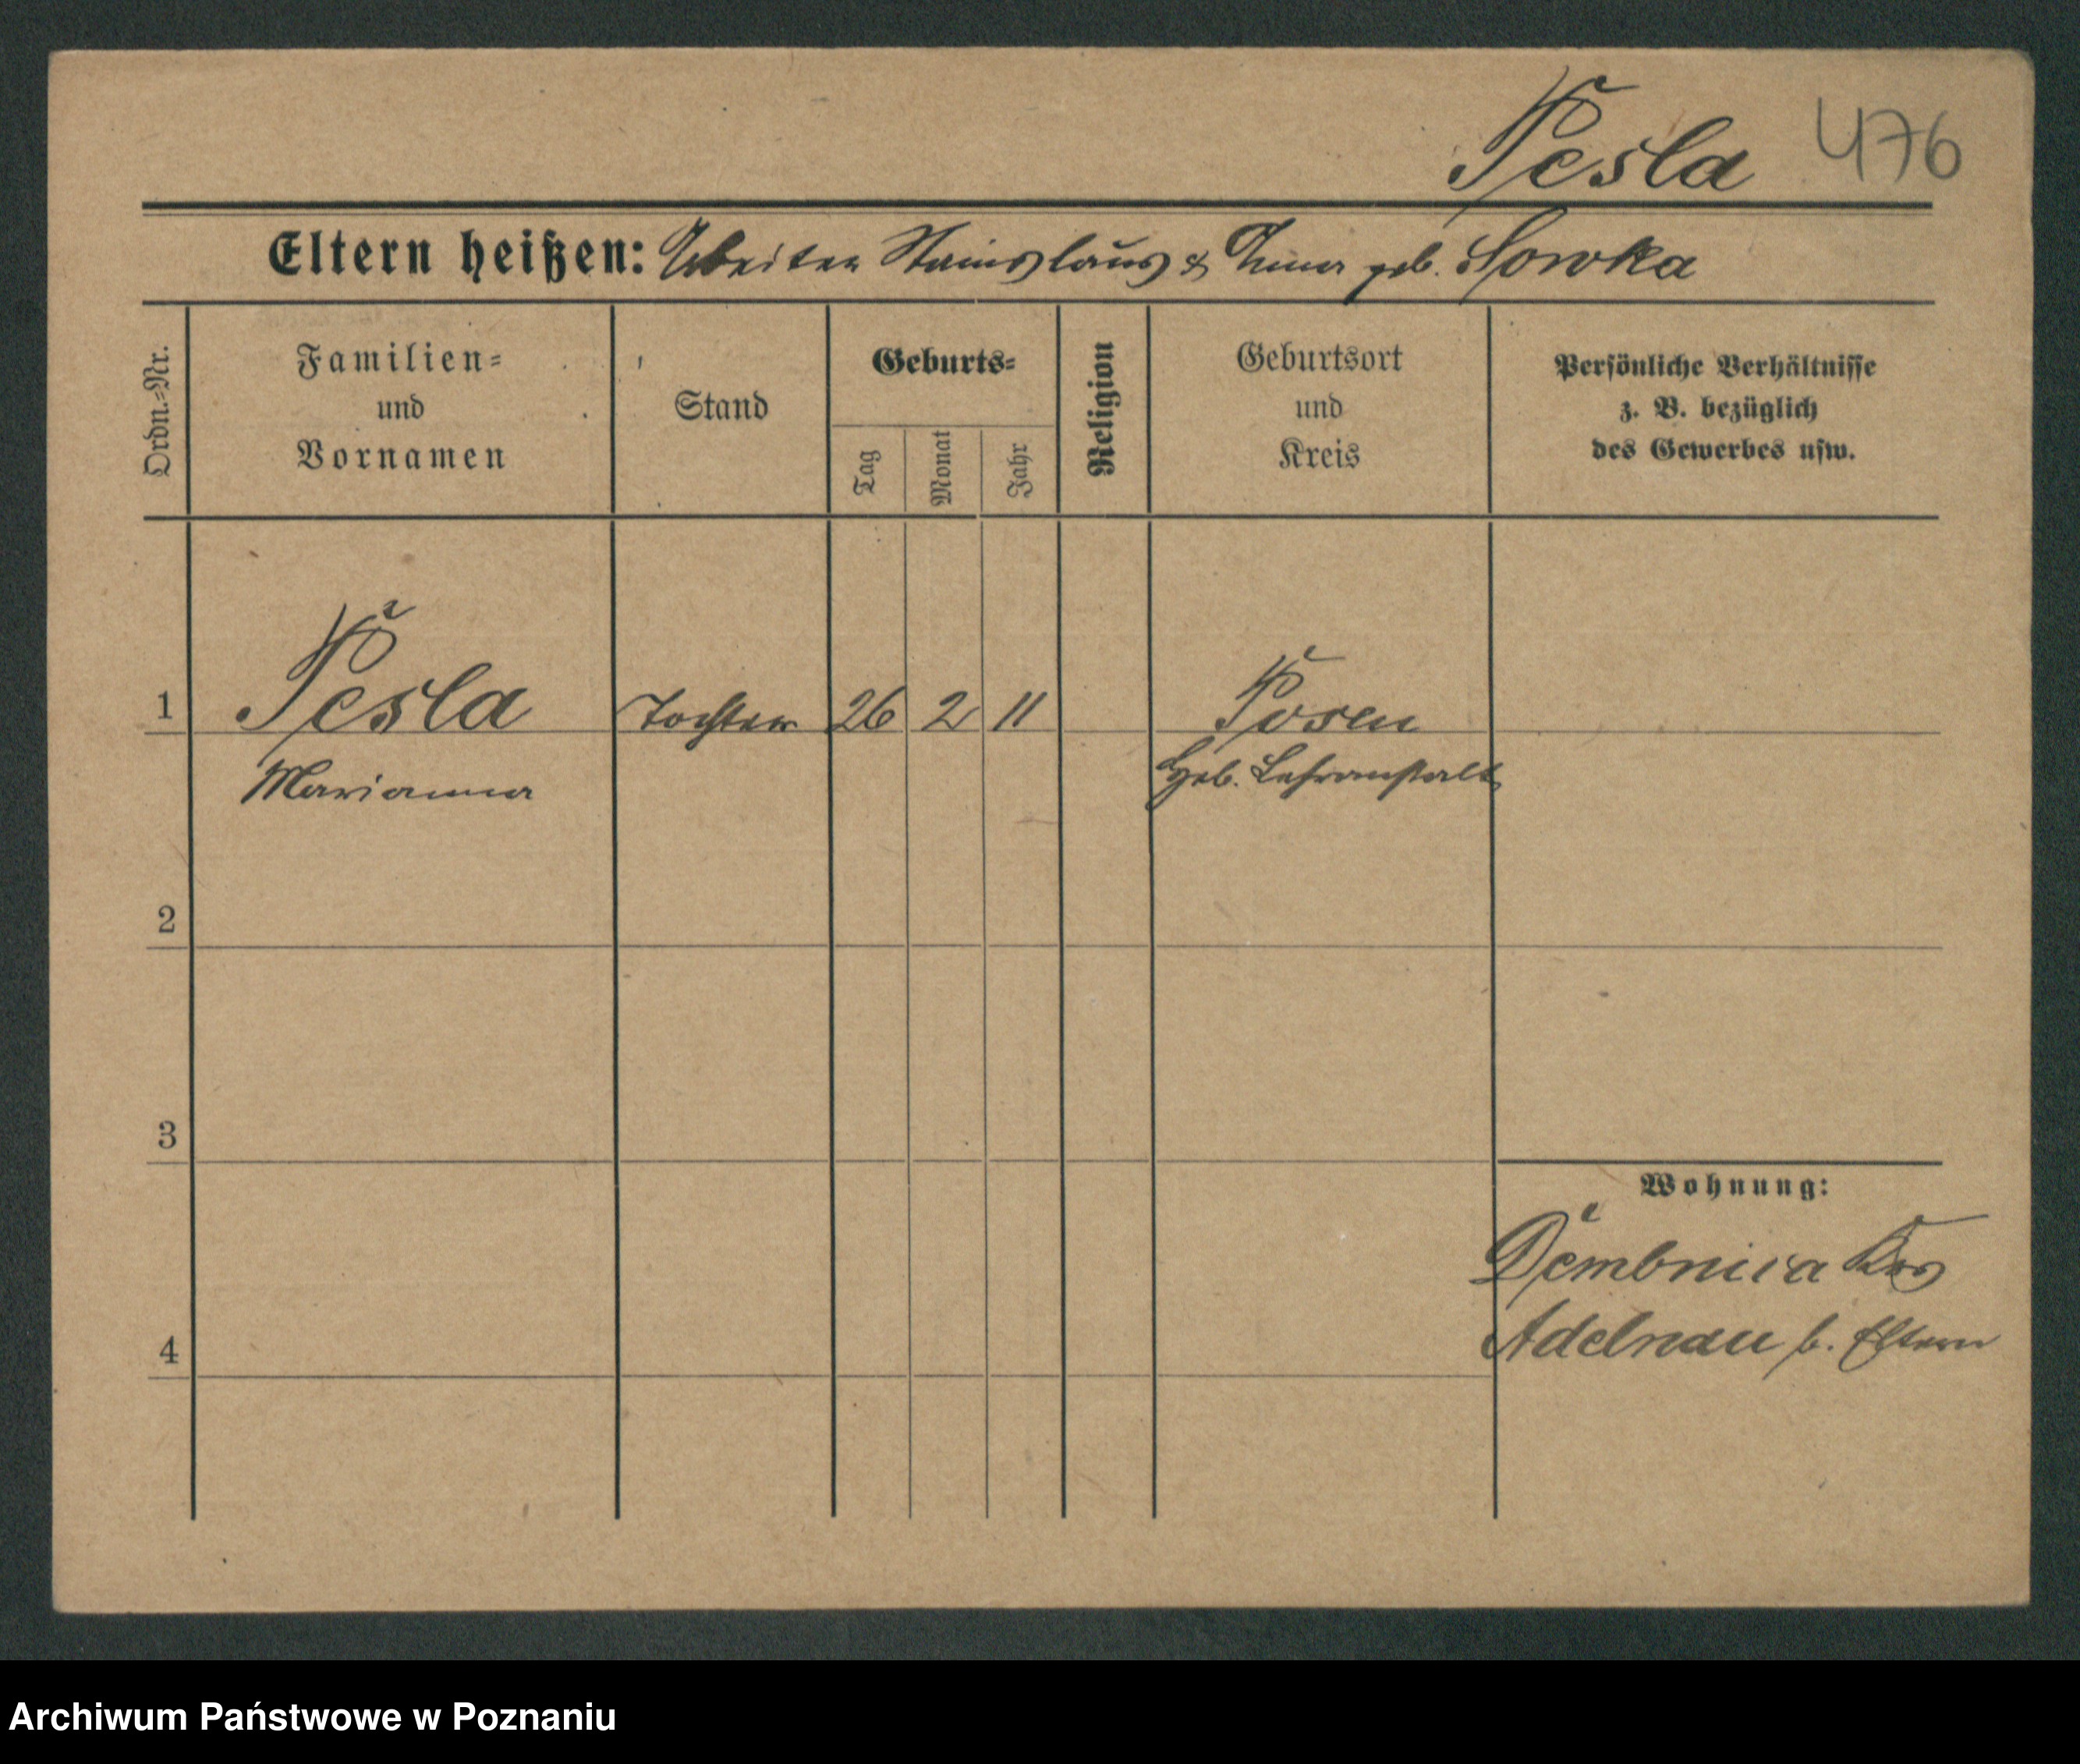 Pesla 476
Eltern heißen: Arbeiter Stanislaus & Anna geb. Sowka
Ordn.-Nr.
Familien-
und
Vornamen
Stand
Geburts-
Tag
Monat
Jahr
Religion
Geburtsort
und
Kreis
Persönliche Verhältnisse
z. B. bezüglich
des Gewerbes usw.
1 Pesla Tochter 26 2 11 Posen
Marianna Heb. Lehranstalt
2
3
Wohnung:
Dembnica Krs
4 Adelnau b. Eltern
Archiwum Państwowe w Poznaniu